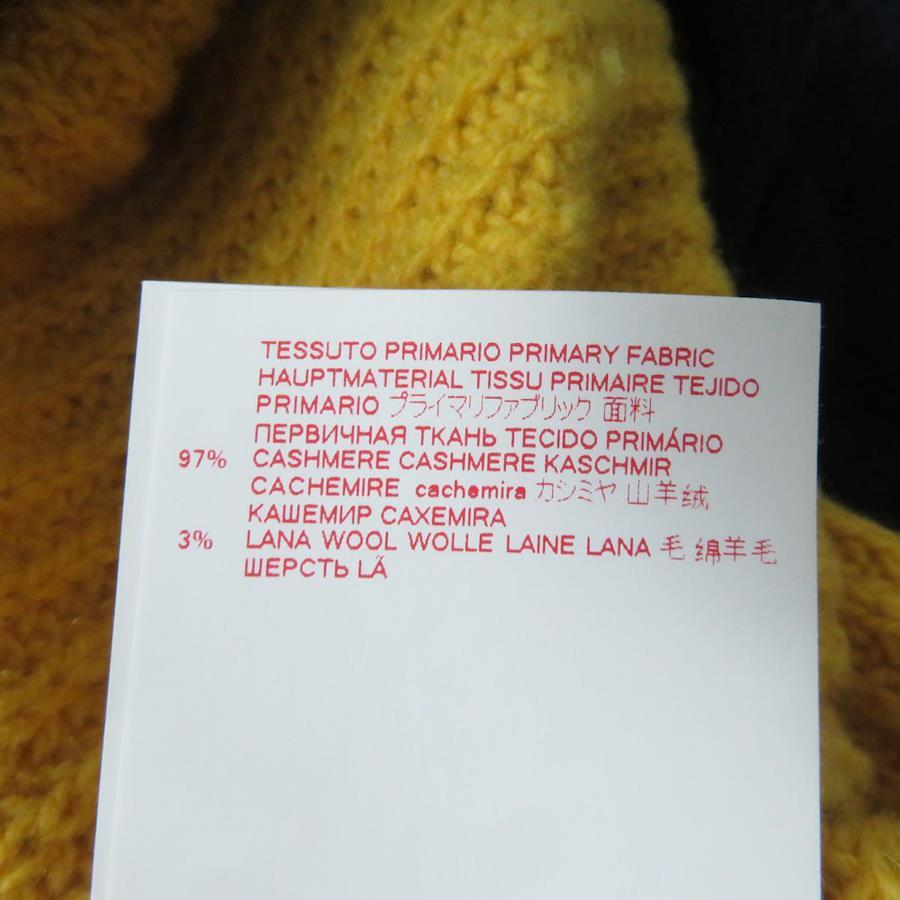 TESSUTO PRIMARIO PRIMARY FABRIC
HAUPTMATERIAL TISSU PRIMAIRE TEJIDO
PRIMARIO プライマリファブリック 面料
ПЕРВИЧНАЯ ТКАНЬ TECIDO PRIMÁRIO
97% CASHMERE CASHMERE KASCHMIR
CACHEMIRE cachemira カシミヤ 山羊绒
КАШЕМИР CAXEMIRA
3% LANA WOOL WOLLE LAINE LANA 毛 绵羊毛
ШЕРСТЬ LÃ